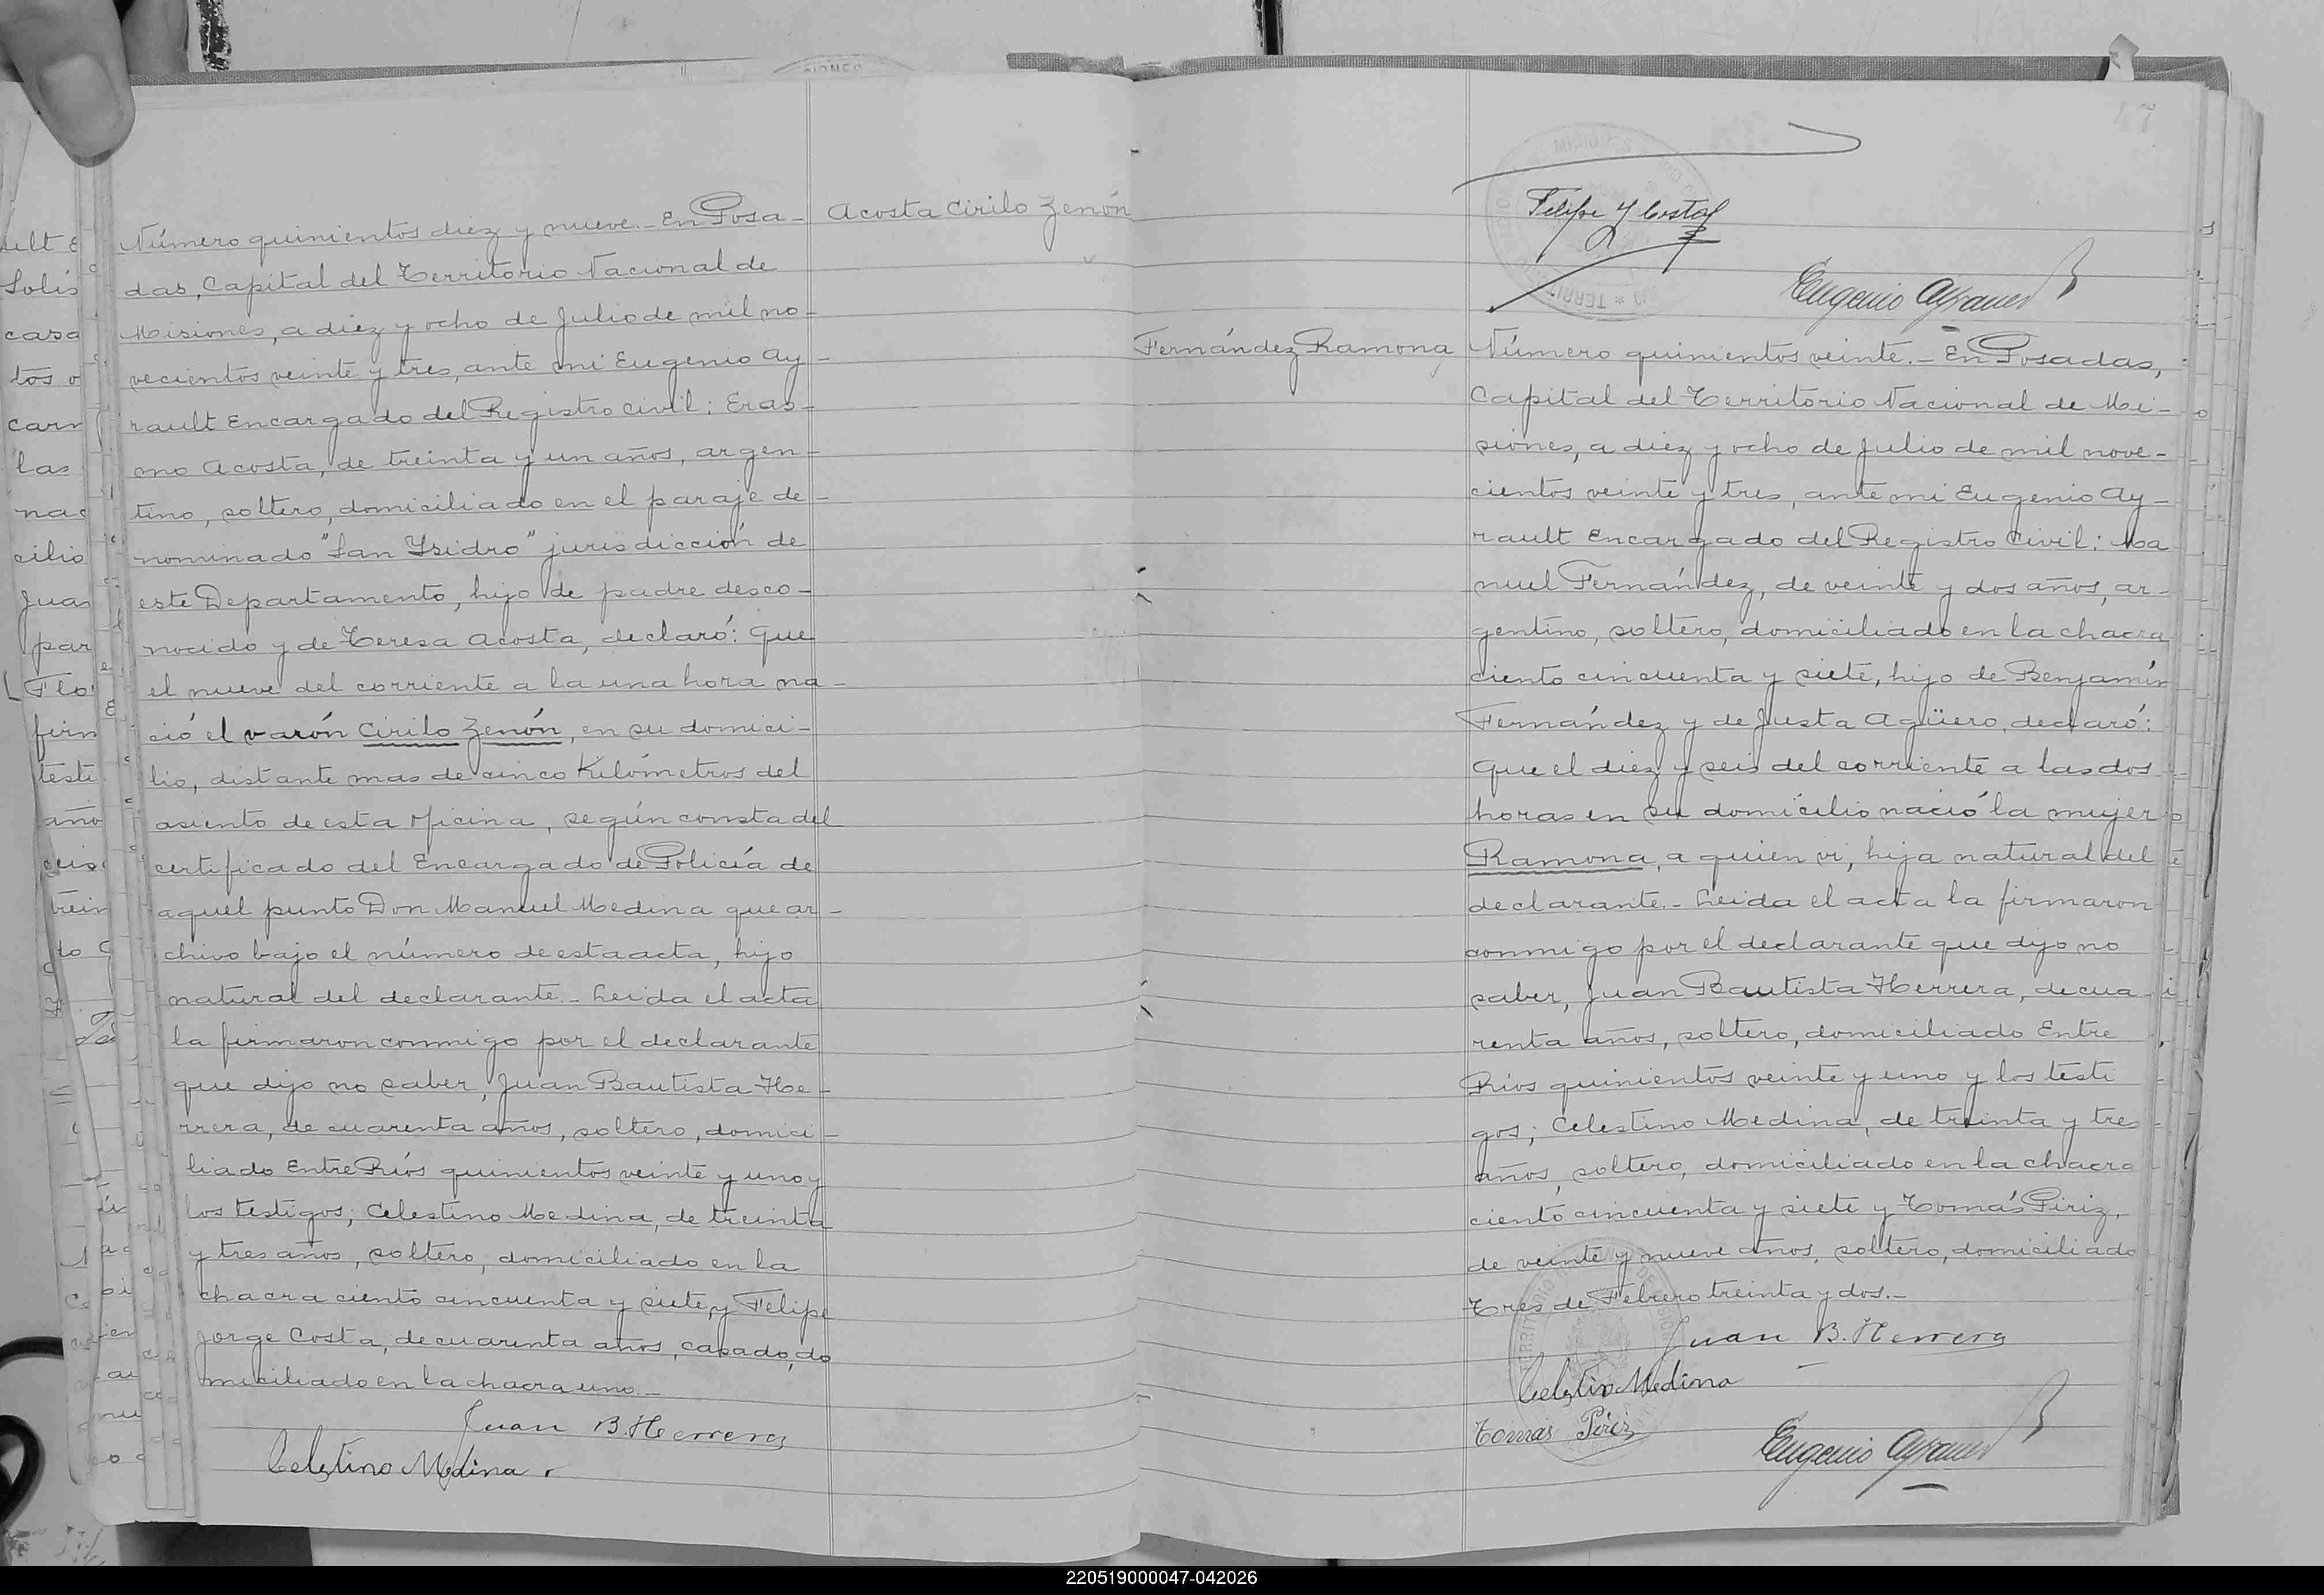 Número quinientos diez y nueve.- En Posa-
das, Capital del Territorio Nacional de
Misiones, a diez y ocho de Julio de mil no-
vecientos veinte y tres, ante mi Eugenio Ay-
rault Encargado del Registro civil: Eras-
mo Acosta, de treinta y un años, argen-
tino, soltero, domiciliado en el paraje de-
nominado "San Ysidro" jurisdicción de
este Departamento, hijo de padre desco-
nocido y de Teresa Acosta, declaró: Que
el nueve del corriente a la una hora na-
ció el varón Cirilo Zenón, en su domici-
lio, distante mas de cinco Kilómetros del
asiento de esta oficina, según consta del
certificado del Encargado de Policía de
aquel punto Don Manuel Medina que ar-
chivo bajo el número de esta acta, hijo
natural del declarante.- Leida el acta
la firmaron conmigo por el declarante
que dijo no saber, Juan Bautista He-
rrera, de cuarenta años, soltero, domici-
liado Entre Ríos quinientos veinte y uno y
los testigos; Celestino Medina, de treinta
y tres años, soltero, domiciliado en la
chacra ciento cincuenta y siete, y Felipe
Jorge Costa, de cuarenta años, casado, do
miciliado en la chacra uno.-
Juan B. Herrera
Celestino Medina
Acosta Cirilo Zenón
47
Felipe J Costa
Eugenio Ayrault
Fernández Ramona
Número quinientos veinte.- En Posadas,
Capital del Territorio Nacional de Mi-
siones, a diez y ocho de Julio de mil nove-
cientos veinte y tres, ante mi Eugenio Ay-
rault Encargado del Registro Civil: Ma
nuel Fernández, de veinte y dos años, ar-
gentino, soltero, domiciliado en la chacra
ciento cincuenta y siete, hijo de Benjamín
Fernández y de Justa Agüero, declaró:
Que el diez y seis del corriente a las dos
horas en su domicilio nació la mujer
Ramona, a quien vi, hija natural del
declarante.- Leida el acta la firmaron
conmigo por el declarante que dijo no
saber, Juan Bautista Herrera, de cua-
renta años, soltero, domiciliado Entre
Ríos quinientos veinte y uno y los testi
gos; Celestino Medina, de treinta y tres
años, soltero, domiciliado en la chacra
ciento cincuenta y siete y Tomás Piriz,
de veinte y nueve años, soltero, domiciliado
Tres de Febrero treinta y dos.-
Juan B. Herrera
Celestino Medina
Tomás Piriz
Eugenio Ayrault
220519000047-042026